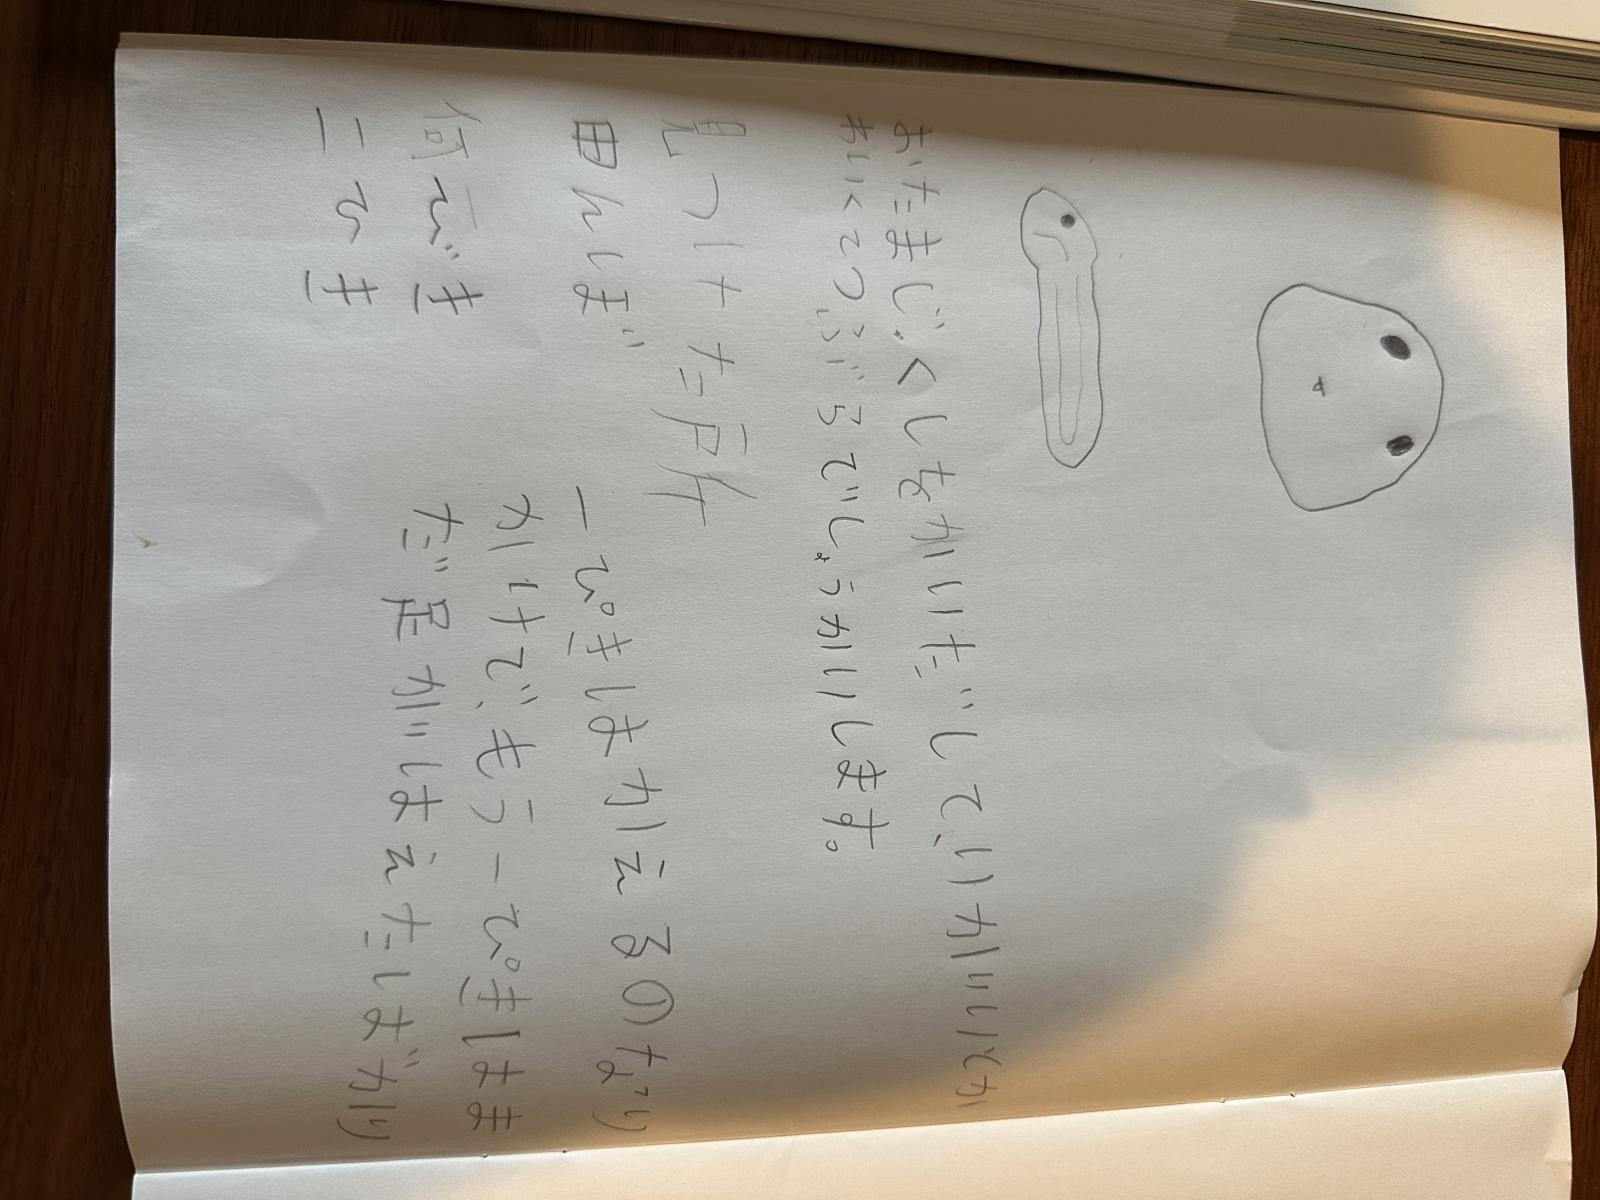 おたまじくしをかいだして、いがいとか
わいくてつぶらでしょうかいします。
見つけた所
田んぼ 一ぴきはかえるのなり
何びき かけで、もう一ぴきはま
二ひき だ足がはえたばかり